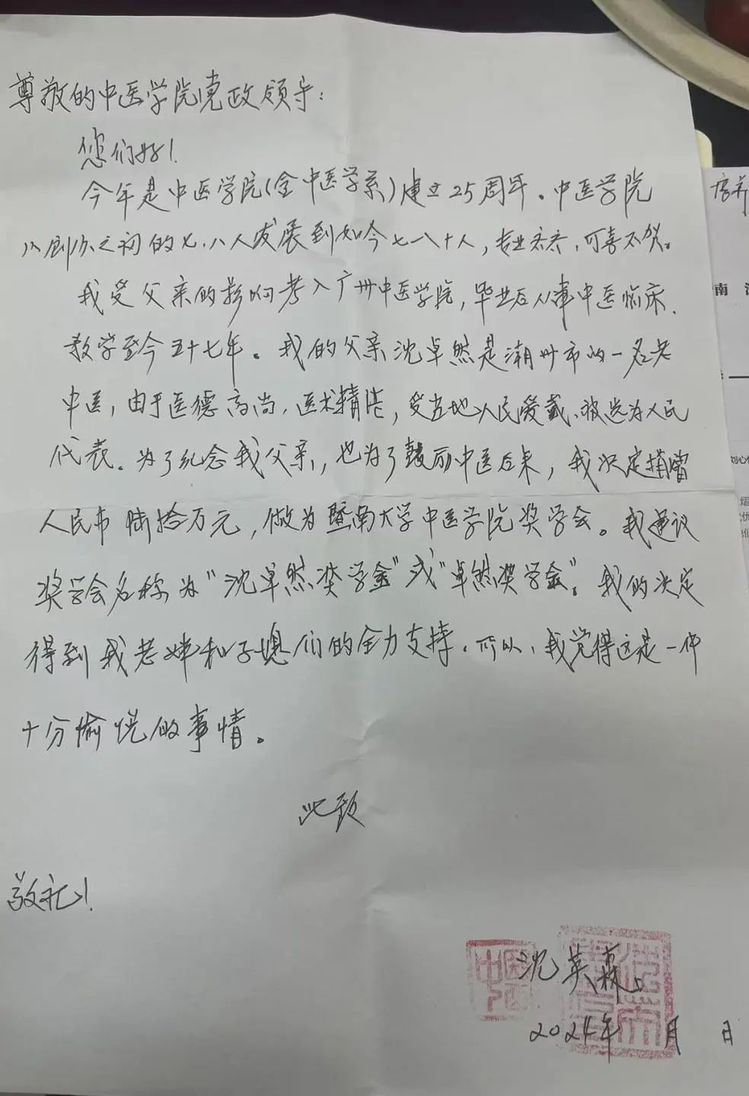 尊敬的中医学院党政领导:
您们好!
今年是中医学院(含中医学系)建立25周年。中医学院
从创办之初的七、八人发展到如今七八十人,专业齐齐,可喜可贺。
我受父亲的影响考入广州中医学院,毕业后从事中医临床、
教学至今五十七年。我的父亲沈卓然是潮州市的一名老
中医,由于医德高尚,医术精湛,受当地人民爱戴,被选为人民
代表。为了纪念我父亲,也为了鼓励中医后来,我决定捐赠
人民币陆拾万元,做为暨南大学中医学院奖学金。我建议
奖学金名称为"沈卓然奖学金"或"卓然奖学金"。我的决定
得到我老婢和子媳们的全力支持。所以,我觉得这是一件
十分愉悦的事情。
此致
敬礼!
沈英森
2024年 月 日
南